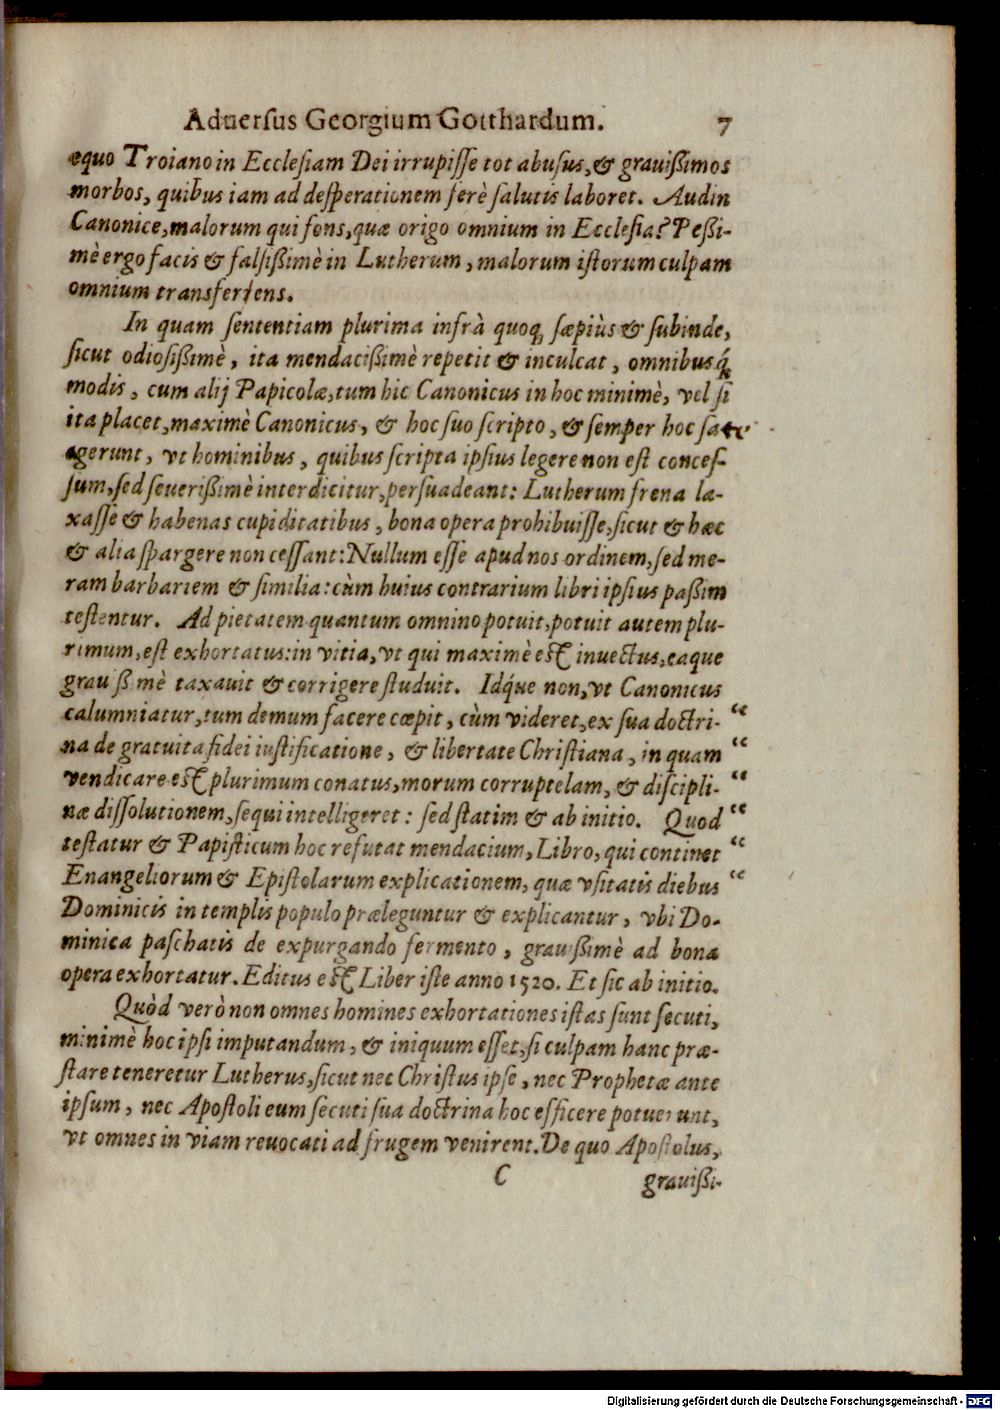 Aduersus Georgium Gotthardum. 7
equo Troiano in Ecclesiam Dei irrupiſſe tot abuſus, & grauiſsimos
morbos, quibus iam ad deſperationem ferè ſalutis laboret. Audin
Canonice, malorum qui fons, quæ origo omnium in Eccleſia? Peſsi-
mè ergo facis & falſiſsimè in Lutherum, malorum iſtorum culpam
omnium transferens.
In quam ſententiam plurima infrà quoq; ſæpiùs & ſubinde,
ſicut odioſiſsimè, ita mendaciſsimè repetit & inculcat, omnibusq́;
modis, cum alij Papicolæ, tum hic Canonicus in hoc minimè, vel ſi
ita placet, maximè Canonicus, & hoc ſuo ſcripto, & ſemper hoc ſat
agerunt, vt hominibus, quibus ſcripta ipſius legere non eſt conceſ-
ſum, ſed ſeueriſsimè interdicitur, perſuadeant: Lutherum frena la-
xaſſe & habenas cupiditatibus, bona opera prohibuiſſe, ſicut & hæc
& alia ſpargere non ceſſant: Nullum eſſe apud nos ordinem, ſed me-
ram barbariem & ſimilia: cùm huius contrarium libri ipſius paſsim
teſtentur. Ad pietatem quantum omnino potuit, potuit autem plu-
rimum, eſt exhortatus: in vitia, vt qui maximè eſt inuectus, eaque
grauiſsimè taxauit & corrigere ſtuduit. Idq́ue non, vt Canonicus
calumniatur, tum demum facere cœpit, cùm videret, ex ſua doctri- “
na de gratuita fidei iuſtificatione, & libertate Chriſtiana, in quam “
vendicare eſt plurimum conatus, morum corruptelam, & diſcipli- “
næ diſſolutionem, ſequi intelligeret: ſed ſtatim & ab initio. Quod “
teſtatur & Papiſticum hoc refutat mendacium, Libro, qui continet “
Enangeliorum & Epiſtolarum explicationem, quæ vſitatis diebus “
Dominicis in templis populo præleguntur & explicantur, vbi Do-
minica paſchatis de expurgando fermento, grauiſsimè ad bona
opera exhortatur. Editus eſt Liber iſte anno 1520. Et ſic ab initio.
Quòd verò non omnes homines exhortationes iſtas ſunt ſecuti,
minimè hoc ipſi imputandum, & iniquum eſſet, ſi culpam hanc præ-
ſtare teneretur Lutherus, ſicut nec Chriſtus ipſe, nec Prophetæ ante
ipſum, nec Apoſtoli eum ſecuti ſua doctrina hoc efficere potuerunt,
vt omnes in viam reuocati ad frugem venirent. De quo Apoſtolus,
C grauiſsi-
Digitalisierung gefördert durch die Deutsche Forschungsgemeinschaft - DFG